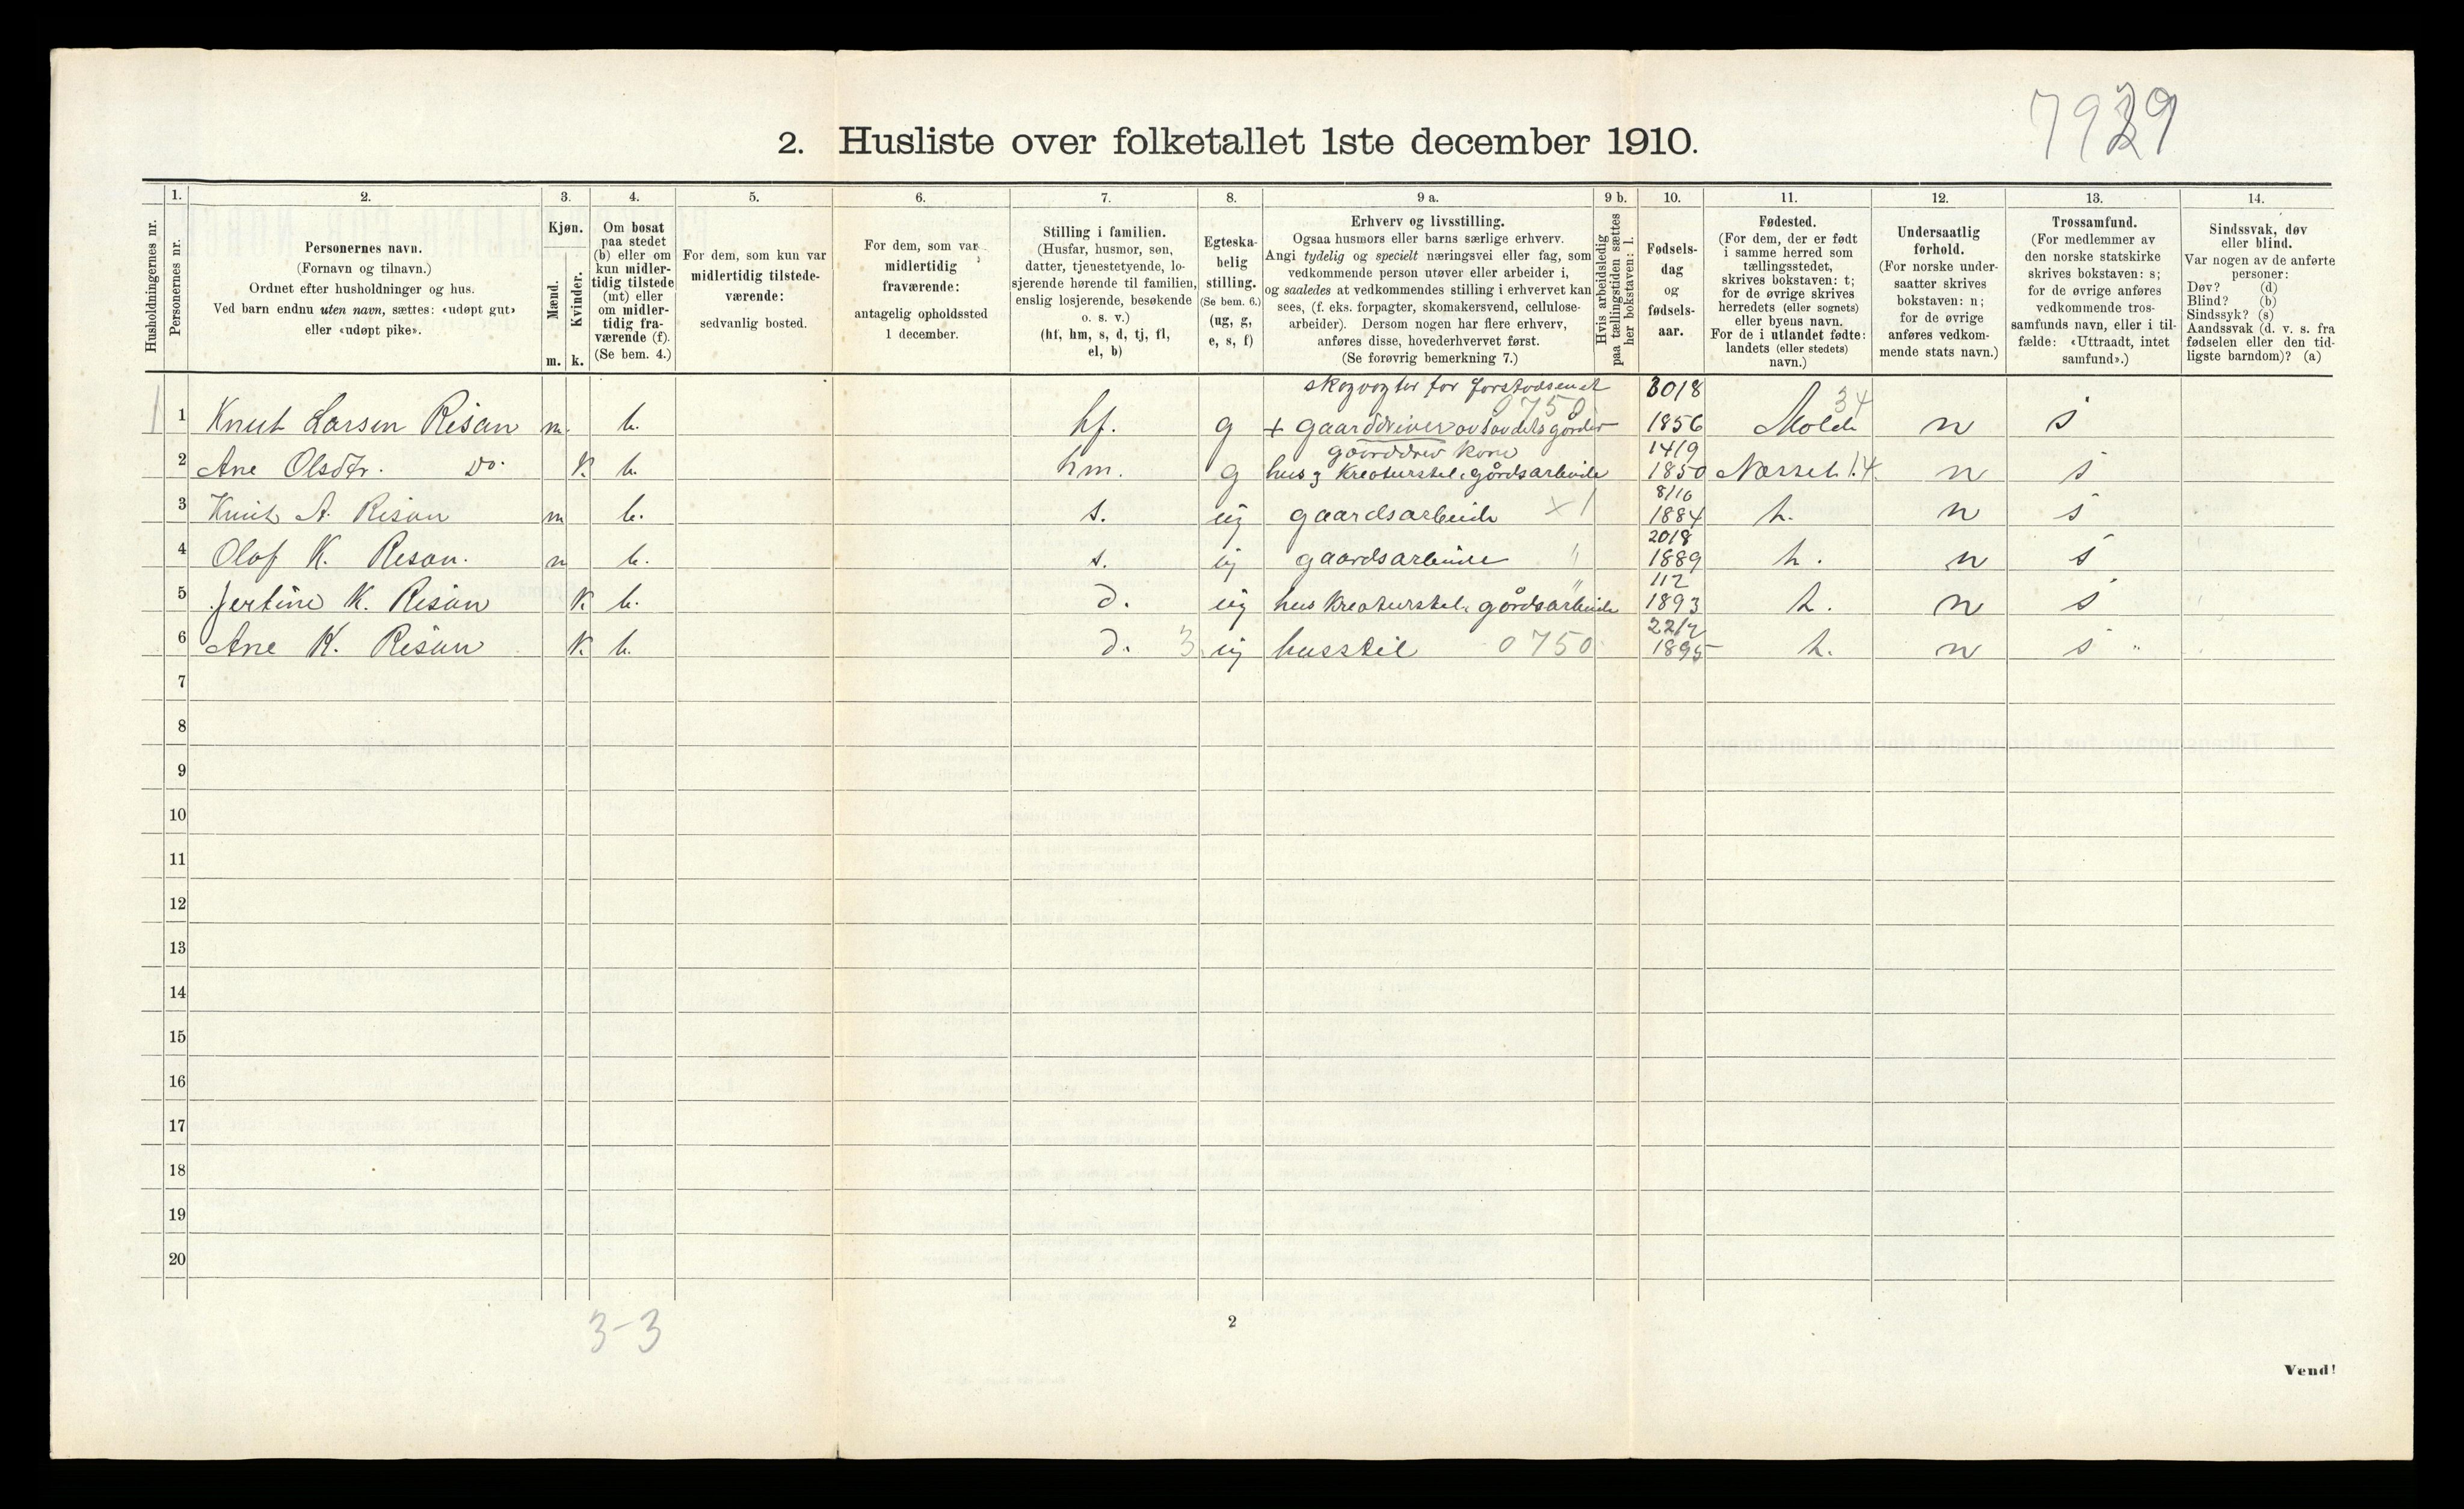 7929
2. Husliste over folketallet 1ste december 1910.
Husholdningernes nr.
1.
Personernes nr.
2.
Personernes navn.
(Fornavn og tilnavn.)
Ordnet efter husholdninger og hus.
Ved barn endnu uten navn, sættes: «udøpt gut»
eller «udøpt pike».
3.
Kjøn.
Mænd.
Kvinder.
m. k.
4.
Om bosat
paa stedet
(b) eller om
kun midler-
tidig tilstede
(mt) eller
om midler-
tidig fra-
værende (f).
(Se bem. 4.)
5.
For dem, som kun var
midlertidig tilstede-
værende:
sedvanlig bosted.
6.
For dem, som var
midlertidig
fraværende:
antagelig opholdssted
1 december.
7.
Stilling i familien.
(Husfar, husmor, søn,
datter, tjenestetyende, lo-
sjerende hørende til familien,
enslig losjerende, besøkende
o. s. v.)
(hf, hm, s, d, tj, fl,
el, b)
8.
Egteska-
belig
stilling.
(Se bem. 6.)
(ug, g,
e, s, f)
9 a.
Erhverv og livsstilling.
Ogsaa husmors eller barns særlige erhverv.
Angi tydelig og specielt næringsvei eller fag, som
vedkommende person utøver eller arbeider i,
og saaledes at vedkommendes stilling i erhvervet kan
sees, (f. eks. forpagter, skomakersvend, cellulose-
arbeider). Dersom nogen har flere erhverv,
anføres disse, hovederhvervet først.
(Se forøvrig bemerkning 7.)
9 b.
Hvis arbeidsledig
paa tællingstiden sættes
her bokstaven: l.
10.
Fødsels-
dag
og
fødsels-
aar.
11.
Fødested.
(For dem, der er født
i samme herred som
tællingsstedet,
skrives bokstaven: t;
for de øvrige skrives
herredets (eller sognets)
eller byens navn.
For de i utlandet fødte:
landets (eller stedets)
navn.)
12.
Undersaatlig
forhold.
(For norske under-
saatter skrives
bokstaven: n;
for de øvrige
anføres vedkom-
mende stats navn.)
13.
Trossamfund.
(For medlemmer av
den norske statskirke
skrives bokstaven: s;
for de øvrige anføres
vedkommende tros-
samfunds navn, eller i til-
fælde: «Uttraadt, intet
samfund».)
14.
Sindssvak, døv
eller blind.
Var nogen av de anførte
personer:
Døv? (d)
Blind? (b)
Sindssyk? (s)
Aandssvak (d. v. s. fra
fødselen eller den tid-
ligste barndom)? (a)
skogvogter for 30/8
0750 34
1 1 Knut Larsen Risan m. b. hf. g + gaarddriver 1856 Molde n s
gaarddrev kone 14/9
2 Ane Olsdtr. Do. k. b. hm. g hus g Kreaturstel, gårdsarbeide 1850 Nesset 14. n s
8/10
3 Knut A. Risan m b. s. ug gaardsarbeide x 1 1884 h. n s
20/8
4 Olaf K. Risan. m b. s. ug gaardsarbeide " 1889 h. n s
" 1/2
5 Jertine K. Risan K. b. d. ug hus Kreaturstel, gårdsarbeide 1893 h. n s
22/7
6 Ane K. Risan K. b. d. 3 ug husstel 0750 1895 h. n s "
7
8
9
10
11
12
13
14
15
16
17
18
19
20
3-3
2
Vend!